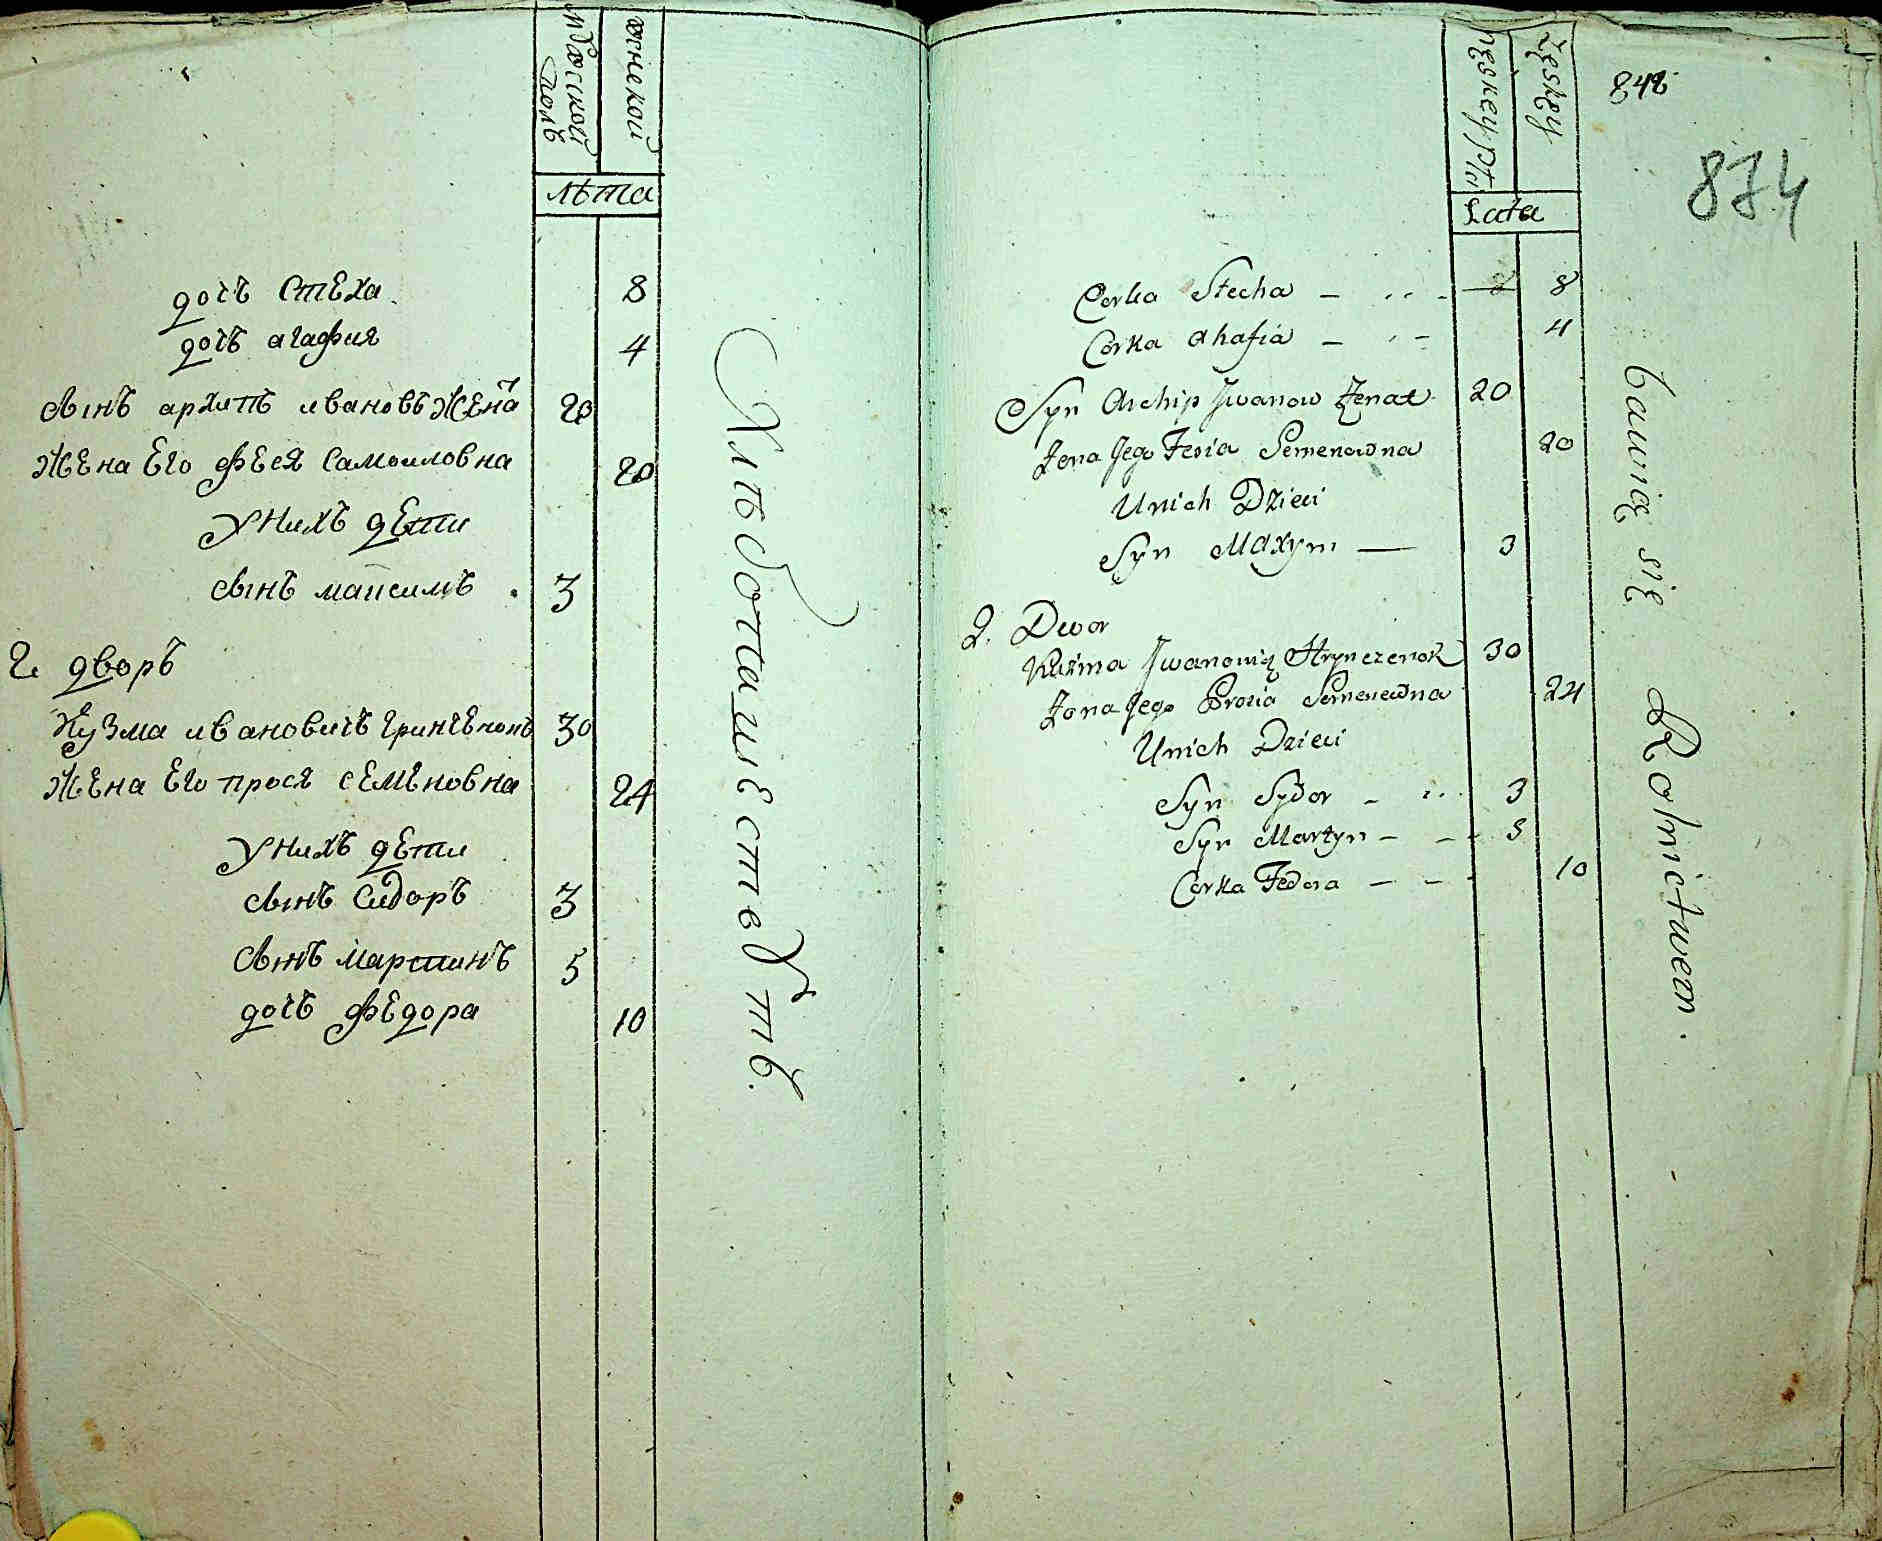 мужской
полъ
женской
лѣта
дочь Стеха 8
дочь агафия 4
сынъ архипъ ивановъ жена 20
жена Его фЕся самоиловна 20
Унихъ дЕти
сынъ маѯимъ 3
2. дворъ
Кузма ивановичъ гринчЕнокъ 30
жЕна Его прося сЕмЕновна 24
Унихъ дЕти
сынъ Сидоръ 3
сынъ мартинъ 5
дочь фЕдора 10
Хлѣбопашествомъ.
męskey Płci
Żęskey
Lata
848
874
Corka Stecha 8
Corka Ahafia 4
Syn Archip Jwanow Żenat 20
Żona Jego Fesia Semenowna 20
Unich Dzieci
Syn Maxym 3
2. Dwor
Kuźma Jwanowicz Hrynczenok 30
Żona Jego Prosia Semenowna 24
Unich Dzieci
Syn Sydor 3
Syn Martyn 5
Corka Fedora 10
bawią się Rolnictwem.